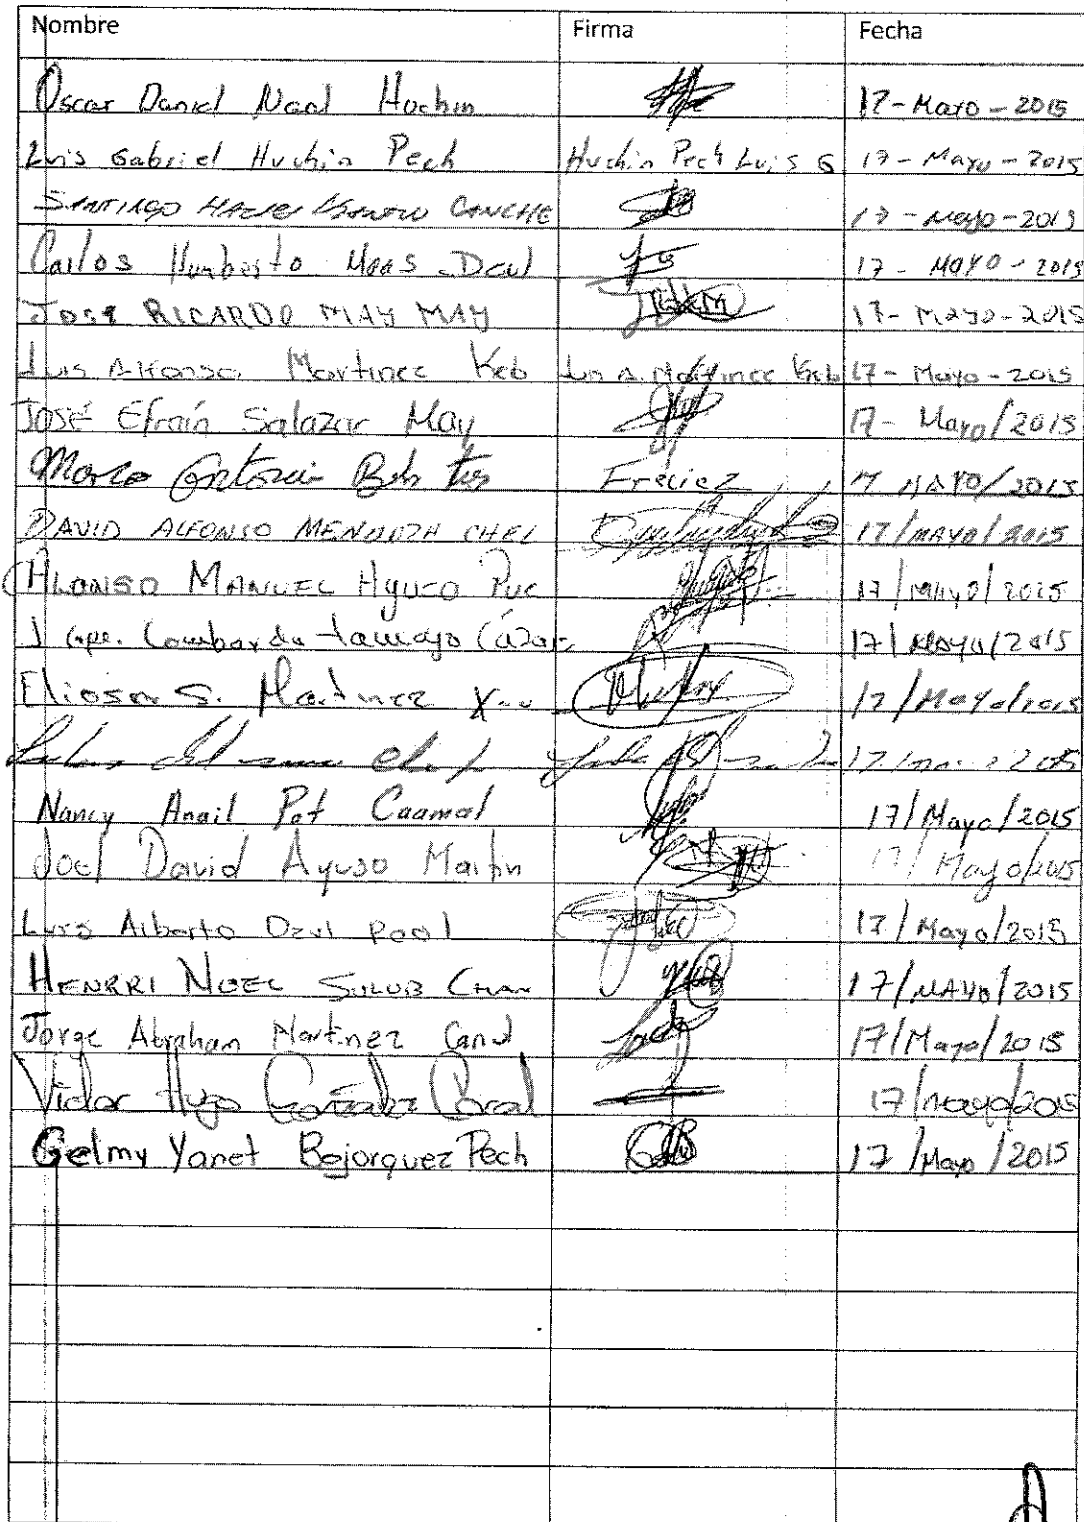 Nombre Firma Fecha
Oscar Daniel Naal Huchin 17-Mayo-2015
Luis Gabriel Huchin Pech Huchin Pech Luis G 17-Mayo-2015
SANTIAGO CANCHE 17-Mayo-2015
Carlos Humberto Maas Dzul 17-MAYO-2015
JOSE RICARDO MAY MAY 17-Mayo-2015
Luis Alfonso Martinez Keb Luis A. Martinez Keb 17-Mayo-2015
JOSÉ Efraín Salazar May 17-Mayo/2015
Marco Antonio MAYO/2015
DAVID ALFONSO MENDOZA CHEL 17/MAYO/2015
ALONSO MANUEL AYUSO PUC 17/Mayo/2015
J Gpe. Lombardo Tamayo 17/Mayo/2015
S. Martinez 17/Mayo/2015
17/
Nancy Anail Pot Caamal 17/Mayo/2015
Joel David Ayuso Martin 17/Mayo/2015
Luis Alberto Dzul Pool 17/Mayo/2015
HENRRI NOEL SULUB CHAN 17/MAYO/2015
Jorge Abraham Martinez Canul 17/Mayo/2015
Victor Hugo González 17/mayo/2015
Gelmy Yanet Bojorquez Pech 17/Mayo/2015